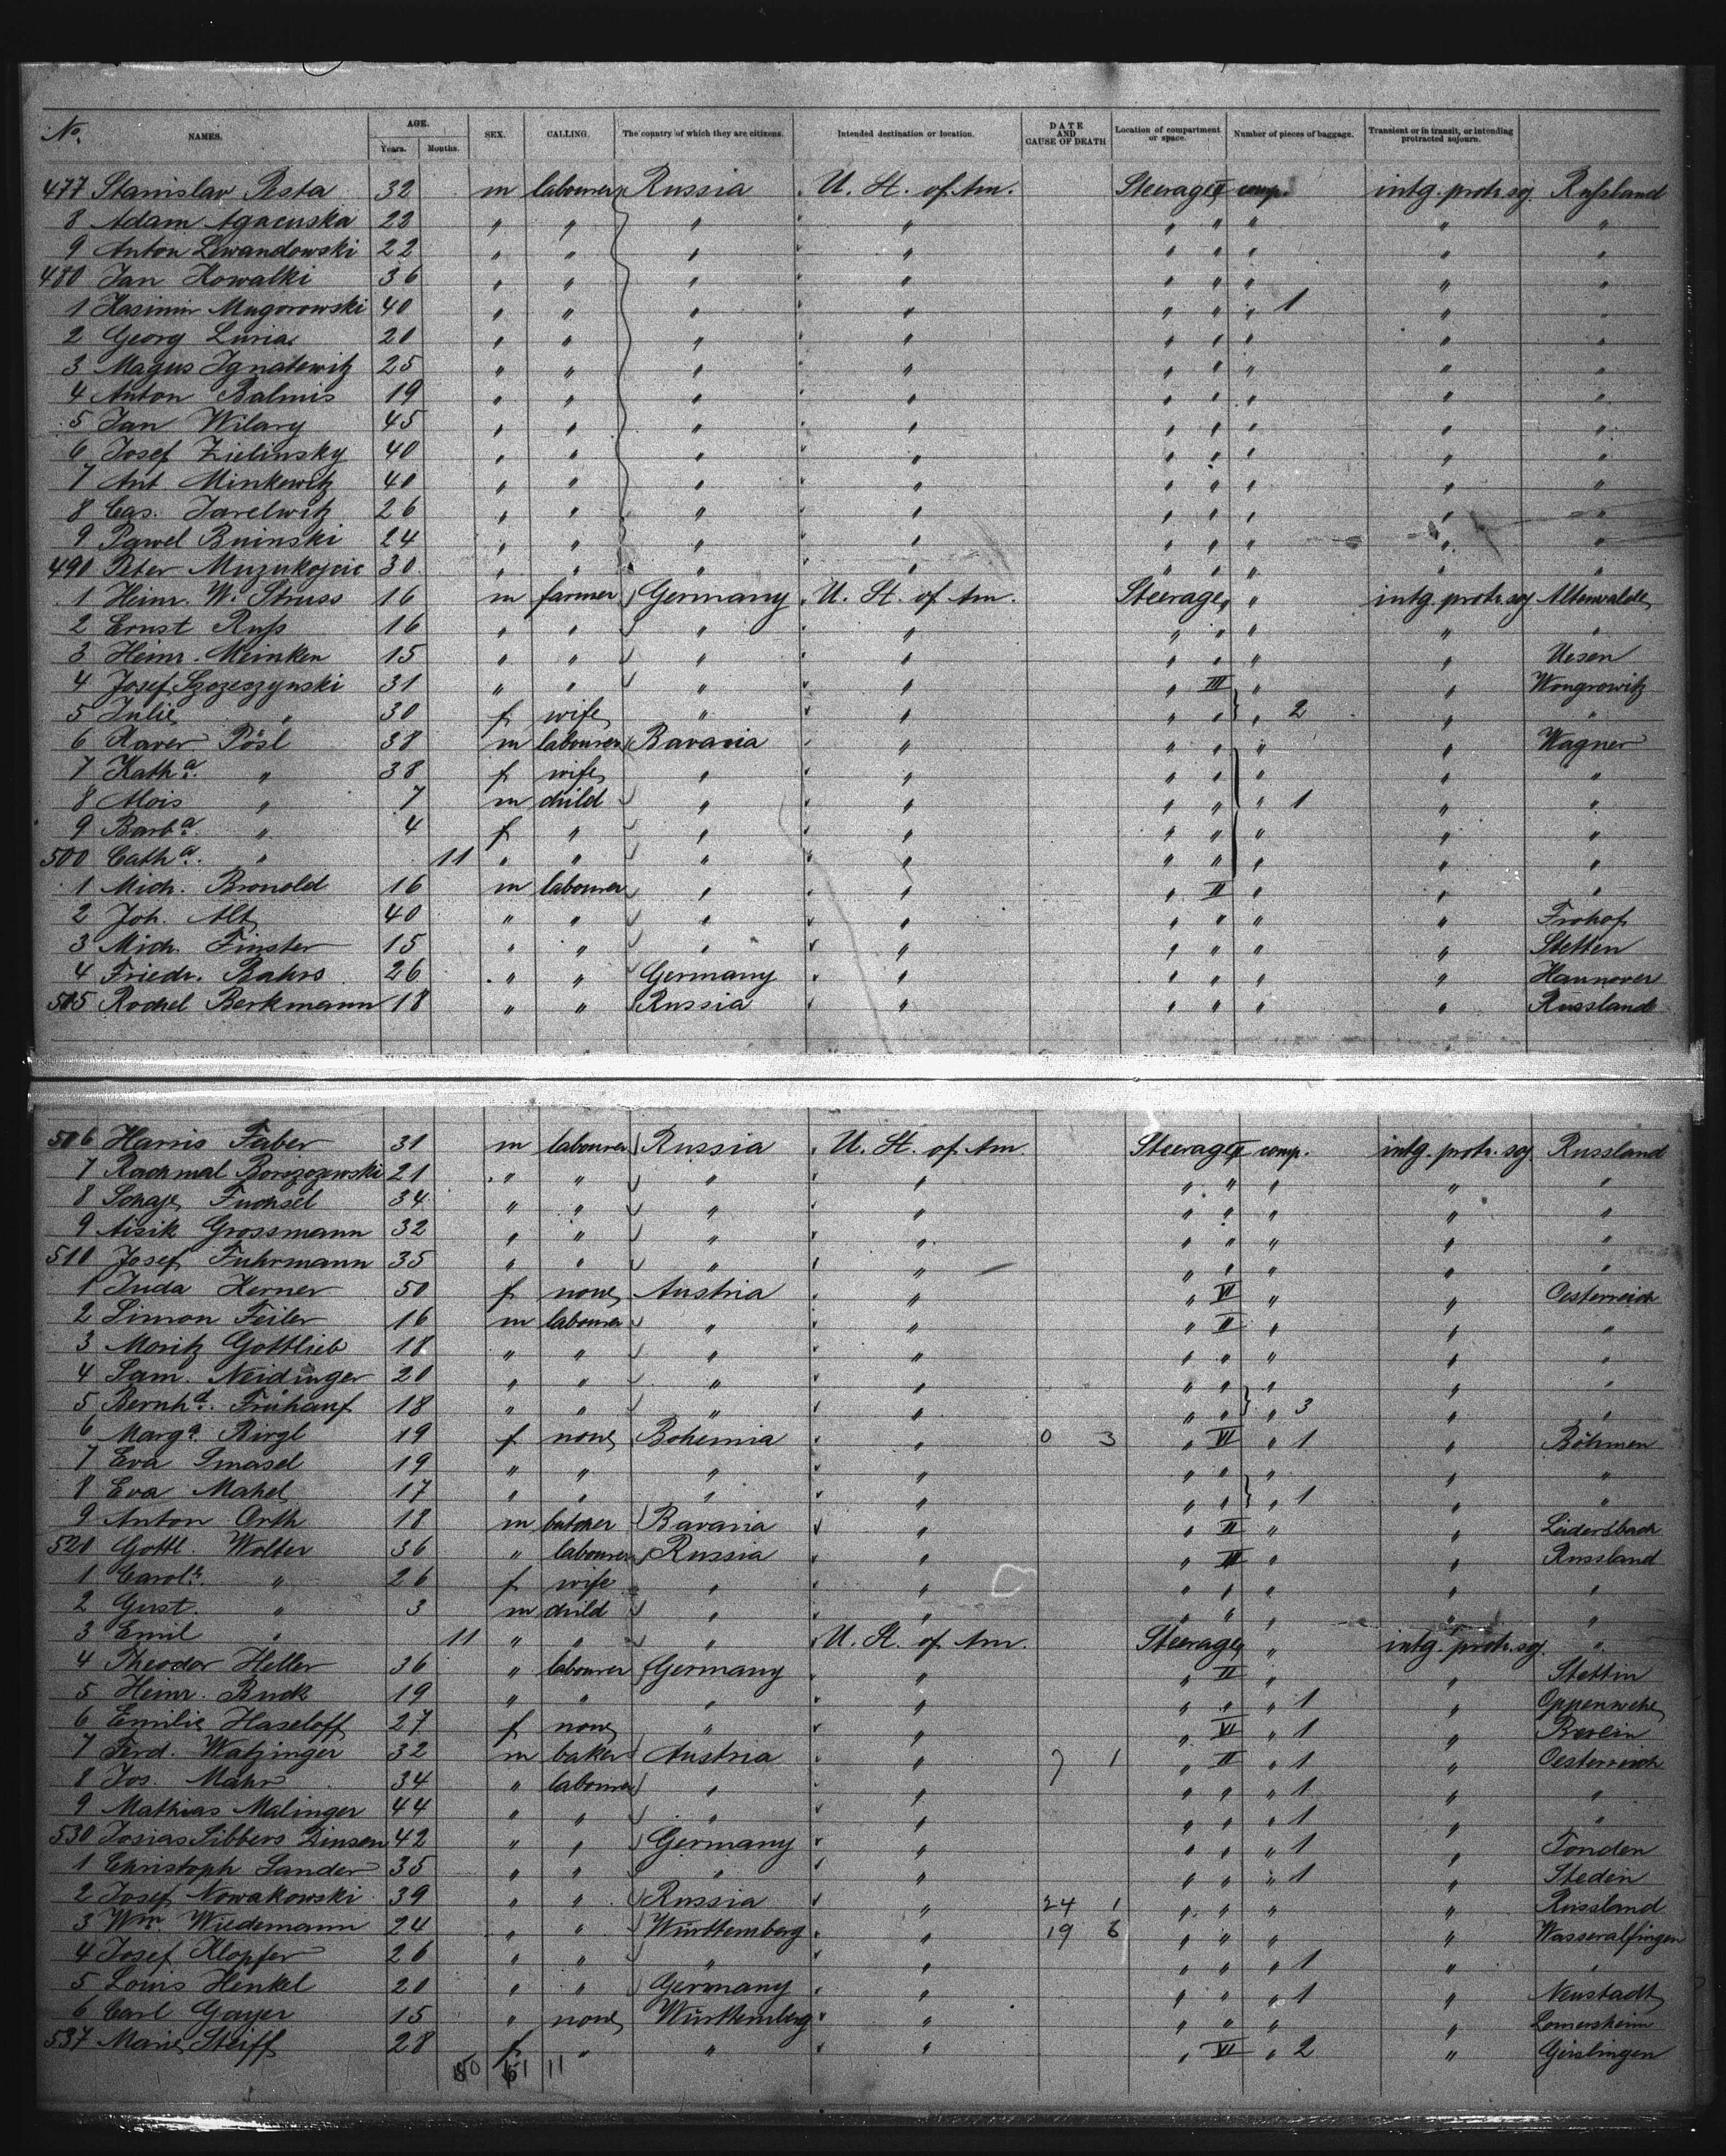 No. NAMES. AGE. Years. Months. SEX. CALLING. The country of which they are citizens. Intended destination or location. DATE AND CAUSE OF DEATH Location of compartment or space. Number of pieces of baggage. Transient or in transit, or intending protracted sojourn.
477 Stanislav Pesta 32 m labourer Russia U. St. of Am. Steerage II comp. intg. protr. soj. Rußland
8 Adam Agacuska 23 " " " " " " " " "
9 Anton Lewandowski 22 " " " " " " " " "
480 Jan Kowalki 36 " " " " " " " " "
1 Kasimir Mugorowski 40 " " " " " " " 1 " "
2 Georg Luria 20 " " " " " " " " "
3 Magus Ignatewitz 25 " " " " " " " " "
4 Anton Balmis 19 " " " " " " " " "
5 Jan Wilary 45 " " " " " " " " "
6 Josef Zielinsky 40 " " " " " " " " "
7 Ant. Minkewitz 40 " " " " " " " " "
8 Cas. Jarelwitz 26 " " " " " " " " "
9 Pawel Buinski 24 " " " " " " " " "
490 Peter 30 " " " " " " " " "
1 Heinr. W. Struss 16 m farmer Germany U. St. of Am. Steerage " " intg. protr. soj. Altenwalde
2 Ernst Ruß 16 " " " " " " " " "
3 Heinr. Meinken 15 " " " " " " " " Uesen
4 Josef Szozeszynski 31 " " " " " III " " Wongrowitz
5 Julie " 30 f wife " " " " " 2 " "
6 Xaver Pösl 38 m labourer Bavaria " " " " " Wagner
7 Katha. " 38 f wife " " " " " " "
8 Alois " 7 m child " " " " " 1 " "
9 Barba. " 4 f " " " " " " " "
500 Catha. " 11 " " " " " " " " "
1 Mich. Bronold 16 m labourer " " " II " " "
2 Joh. Alt 40 " " " " " " " " Frohof
3 Mich. Finster 15 " " " " " " " " Stetten
4 Friedr. Bahrs 26 " " Germany " " " " " Hannover
505 Rochel Berkmann 18 " " Russia " " " " " Russland
506 Harris Faber 31 m labourer Russia U. St. of Am. Steerage II comp. intg. protr. soj. Russland
7 Rachmal Borczozewski 21 " " " " " " " " "
8 Schaje Fuchsel 34 " " " " " " " " "
9 Aisik Grossmann 32 " " " " " " " " "
510 Josef Fuhrmann 35 " " " " " " " " "
1 Juda Kerner 50 f none Austria " " VI " " Oesterreich
2 Simon Feiler 16 m labourer " " " II " " "
3 Moritz Gottlieb 18 " " " " " " " " "
4 Sam. Neidinger 20 " " " " " " " " "
5 Bernhd. Frühauf 18 " " " " " " " 3 " "
6 Marga. Birgl 19 f none Bohemia " 0 3 " VI " 1 " Böhmen
7 Eva Smasel 19 " " " " " " " " "
8 Eva Mahel 17 " " " " " " " 1 " "
9 Anton Orth 18 m butcher Bavaria " " II " " Leidersbach
520 Gottl. Wolter 36 " labourer Russia " " III " " Russland
1 Carole. " 26 f wife " " " " " " "
2 Gust. " 3 m child " " " " " " "
3 Emil " 11 " " " U. St. of Am. Steerage " intg. protr. soj. "
4 Theodor Heller 36 " labourer Germany " " II " " Stettin
5 Heinr. Buck 19 " " " " " " " 1 " Oppenwehe
6 Emilie Haseloff 27 f none " " " VI " 1 " Berlin
7 Ferd. Watzinger 32 m baker Austria " 7 1 " II " 1 " Oesterreich
8 Jos. Mahr 34 " labourer " " " " " 1 " "
9 Mathias Malinger 44 " " " " " " " 1 " "
530 Josias Sibbers Dinsen 42 " " Germany " " " " 1 " Tonden
1 Christoph Sander 35 " " " " " " " 1 " Steden
2 Josef Nowakowski 39 " " Russia " 24 1 " " " " Russland
3 Wm. Wiedemann 24 " " Württemberg " 19 6 " " " " Wasseralfingen
4 Josef Klopfer 26 " " " " " " " 1 " "
5 Louis Henkel 20 " " Germany " " " " 1 " Neustadt
6 Carl Gayer 15 " none Württemberg " " " " " Lomersheim
537 Marie Steiff 28 f " " " " VI " 2 " Geislingen
50 61 11